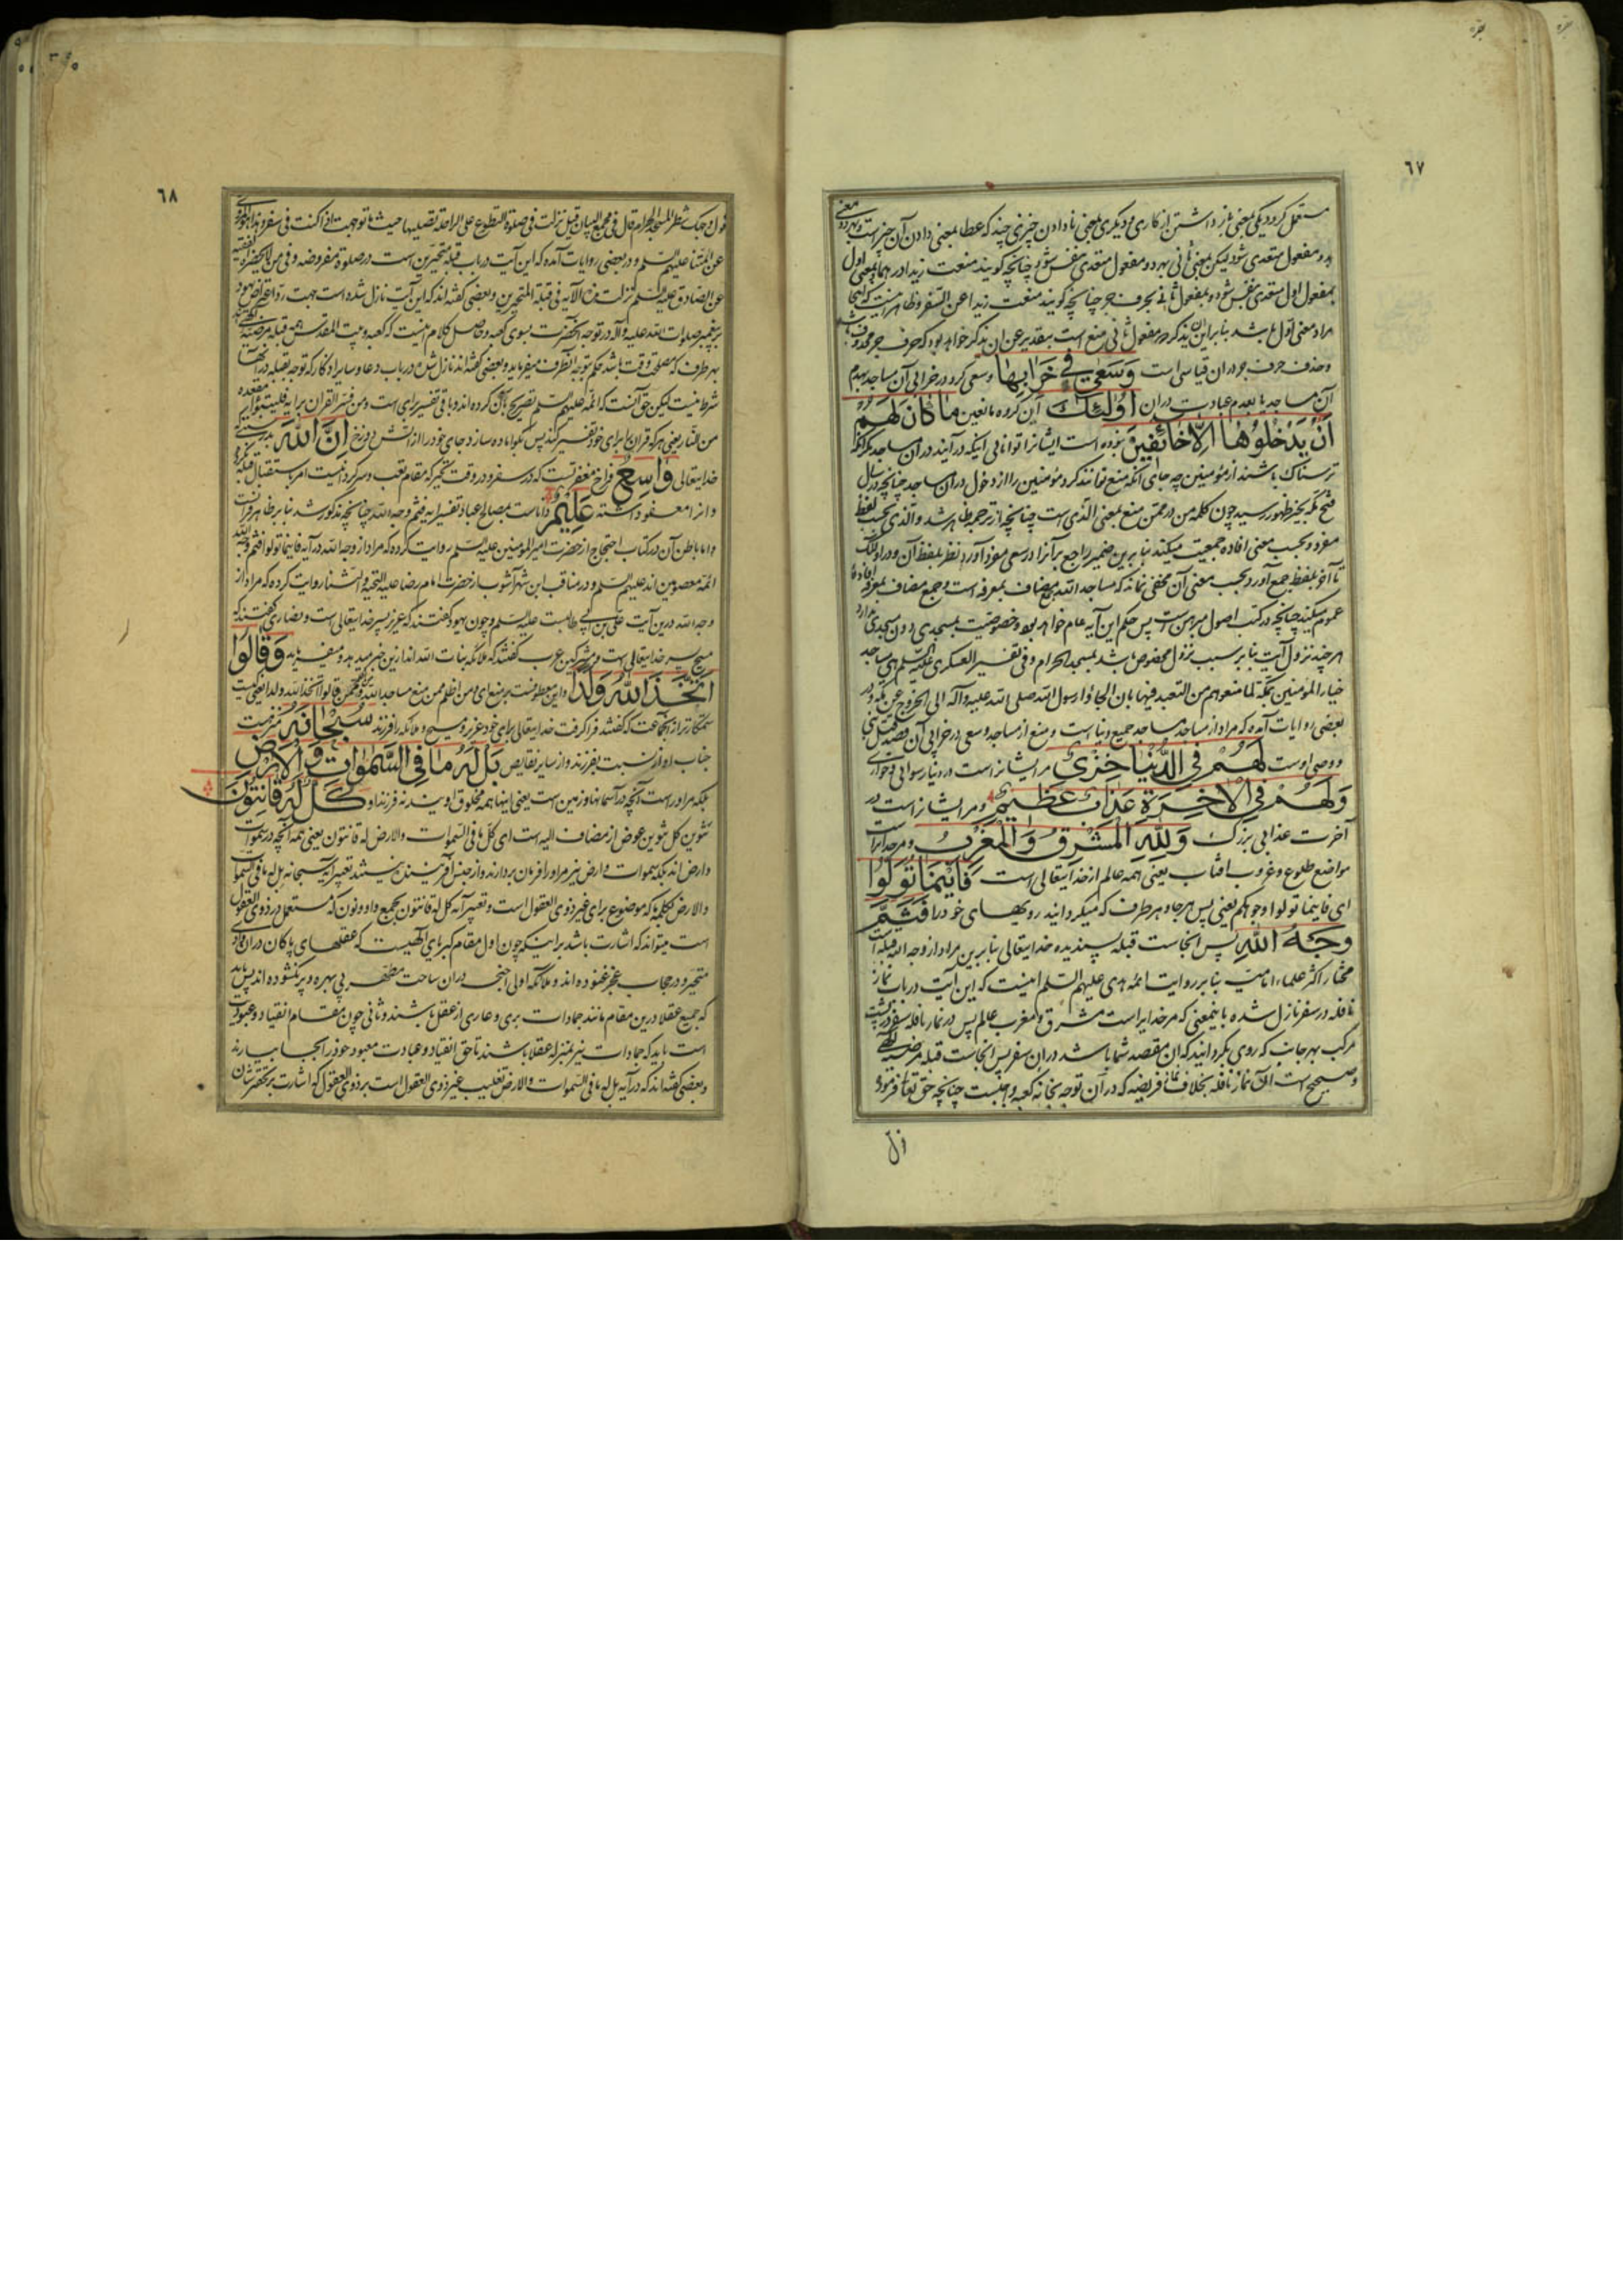 بقره
بقره
٦٧
مستعمل کردد یکی بمعنی باز داشتن از کاری و دیکری بمعنی نادادن چیزی چند که عطا بمعنی دادن آن چیز است و بهر دو معنی
بدو مفعول متعدی شود لیکن بمعنی ثانی بهر دو مفعول متعدی بنفس شود چنانچه کویند منعت زیدا درهما و بمعنی اول
بمفعول اول متعدی بنفس شود و بمفعول ثانی بحرف جر چنانچه کویند منعت زیدا عن السفر و ظاهر اینست که اینجا
مراد معنی اول باشد بنابراین ان یذکر در مفعول ثانی منع است بتقدیر عن ان یذکر خواهد بود که حرف جر محذوف باشد
و حذف حرف جر در ان قیاسی است وَسَعٰی فِی خَرَابِهَا و سعی کرد در خرابی آن مساجد بهدم
آن مساجد یا بعدم عبادت دران اُولٰئِكَ آن کروه مانعین مَا كَانَ لَهُمْ
اَنْ يَدْخُلُوهَا اِلَّا خَائِفِينَ نبوده است ایشانرا توانائی اینکه در آیند دران مساجد مکر آنکه
ترسناک باشند از مؤمنین چه جای آنکه منع توانند کرد مؤمنین را از دخول دران مساجد چنانچه در سال
فتح مکه بحیز ظهور رسید چون کلمه من در ممن منع بمعنی الذی است چنانچه از ترجمه ظاهر شد و الذی بحسب لفظ
مفرد و بحسب معنی افاده جمعیت میکند بنابرین ضمیر راجع بر آنرا در سعی مفرد آورد نظر بلفظ آن و در اولئک
تا آخر بلفظ جمع آورد بحسب معنی آن مخفی نماند که مساجد الله جمع مضاف بمعرفه است و جمع مضاف بمعرفه افاده
عموم میکند چنانچه در کتب اصول مبرهن است پس حکم این آیه عام خواهد بود و خصوصیت بمسجدی دون مسجدی ندارد
هر چند نزول آیت بنابر سبب نزول مخصوص باشد بمسجد الحرام و فی تفسیر العسکری علیه السلم هی مساجد
خیار المؤمنین بمکة لما منعوهم من التعبد فیها بان الجاؤا رسول الله صلی الله علیه وآله الی الخروج عن مکة و در
بعضی روایات آمده که مراد از مساجد مساجد جمیع دنیا است و منع از مساجد و سعی در خرابی آن قصد قتل نبی
و وصی اوست لَهُمْ فِي الدُّنْيَا خِزْيٌ مر ایشانراست در دنیا رسوائی و خواری
وَلَهُمْ فِي الْاٰخِرَةِ عَذَابٌ عَظِيمٌ و مر ایشانراست در
آخرت عذابی بزرک وَلِلّٰهِ الْمَشْرِقُ وَالْمَغْرِبُ و مر خدایراست
مواضع طلوع و غروب آفتاب یعنی همه عالم از خدایتعالی است فَاَيْنَمَا تُوَلُّوا
ای فاینما تولوا وجوهکم یعنی پس هر جا و هر طرف که میکردانید رویهای خود را فَثَمَّ
وَجْهُ اللّٰهِ پس انجاست قبله پسندیده خدایتعالی بنابرین مراد از وجه الله قبله است
مختار اکثر علماء امامیه بنابر روایت ائمه هدی علیهم السلم اینست که این آیت در باب نماز
نافله در سفر نازل شده باینمعنی که مر خدایراست مشرق و مغرب عالم پس در نماز نافله سفر در پشت
مرکب بهر جانب که روی بکردانید که ان مقصد شما باشد دران سفر پس انجاست قبله مرضیه الهی
و صحیح است آن نماز نافله بخلاف نماز فریضه که در آن توجه بخانه کعبه واجبست چنانچه حق تعالی فرمود
فول
٦٨
فول وجهک شطر المسجد الحرام قال فی مجمع البیان قیل نزلت فی صلوة التطوع علی الراحلة تصلیها حیث ما توجهت اذا کنت فی سفر و هذا المروی
عن ائمتنا علیهم السلم و در بعضی روایات آمده که این آیت در باب قبله متحیرین است در صلوة مفروضه و فی من لا یحضره الفقیه
عن الصادق علیه السلم نزلت هذه الآیة فی قبلة المتحیرین و بعضی کفته اند که این آیت نازل شده است جهت رد اعتراض یهود
بر پیغمبر صلوات الله علیه وآله در توجه آنحضرت بسوی کعبه و حاصل کلام اینست که کعبه و بیت المقدس همه قبله مرضیه الهی اند
بهر طرف که مصلحت وقت باشد حکم بتوجه آنطرف میفرماید و بعضی کفته اند نازل شده در باب دعا و سایر اذکار که توجه بقبله در آنها
شرط نیست لیکن حق آنست که ائمه علیهم السلم تصریح بآن کرده اند و باقی تفسیر برای است و من فسر القران برایه فلیتبوأ مقعده
من النار یعنی هر که قران را برای خود تفسیر کند پس کو آماده سازد جای خود را از آتش دوزخ اِنَّ اللّٰهَ بدرستی که
خدایتعالی وَاسِعٌ فراخ مغفرتست که در سفر و در وقت تحیر که مقام تعب و سرکردانیست امر باستقبال قبله نکرد
و انرا معفو داشته عَلِيمٌ دانا است بمصالح عباد تفسیر ایه فثم وجه الله چنانچه مذکور شد بنابر ظاهر قرانست
و اما باطن آن در کتاب احتجاج از حضرت امیر المؤمنین علیه السلم روایت کرده که مراد از وجه الله در آیه فاینما تولوا فثم وجه الله
ائمه معصومین اند علیهم السلم و در مناقب ابن شهر آشوب از حضرت امام رضا علیه التحیة والثنا روایت کرده که مراد از
وجه الله درین آیت علی بن ابی طالبست علیه السلم و چون یهود کفتند که عزیر پسر خدایتعالی است و نصاری کفتند که
مسیح پسر خدایتعالی است و مشرکین عرب کفتند که ملائکه بنات الله اند ازین خبر میدهد و میفرماید وَقَالُوا
اتَّخَذَ اللّٰهُ وَلَدًا و این معطوفست بر منع ای و من اظلم ممن منع مساجد الله و ممن قالوا اتخذ الله ولدا یعنی کیست
ستمکارتر از آنجماعت که کفتند فرا کرفت خدایتعالی برای خود عزیر و مسیح و ملائکه را فرزند سُبْحَانَهُ منزهست
جناب او از نسبت بفرزند و از سایر نقایص بَلْ لَهُ مَا فِي السَّمٰوَاتِ وَالْاَرْضِ
بلکه مر اوراست آنچه در آسمانها و زمین است یعنی اینها همه مخلوق اویند نه فرزند او كُلٌّ لَهُ قَانِتُونَ
تنوین کل تنوین عوض از مضاف الیه است ای کل ما فی السموات والارض له قانتون یعنی همه آنچه در سموات
و ارض اند بلکه سموات و ارض نیز مر او را فرمان بردارند و از جنس آفریننده نیستند تعبیر آیه سبحانه بل له ما فی السموات
والارض بکلمه ما که موضوع برای غیر ذوی العقول است و تعبیر آیه کل له قانتون بجمع واو و نون که مستعمل در ذوی العقول
است میتواند که اشارت باشد براینکه چون اول مقام کبریای الهیست که عقلهای پاکان دران وادی
متحیر و در حجاب عجز غنوده اند و ملائکه اولی اجنحه دران ساحت مطهر بی بهره و پر نکشوده اند پس باید
که جمیع عقلا درین مقام مانند جمادات بری و عاری از عقل باشند و ثانی چون مقام انقیاد و عبودیت
است باید که جمادات نیز بمنزله عقلا باشند تا حق انقیاد و عبادت معبود خود را بجا بیارند
و بعضی کفته اند که در آیه بل له ما فی السموات والارض تغلیب غیر ذوی العقول است بر ذوی العقول که اشارت بر تحقیر شان